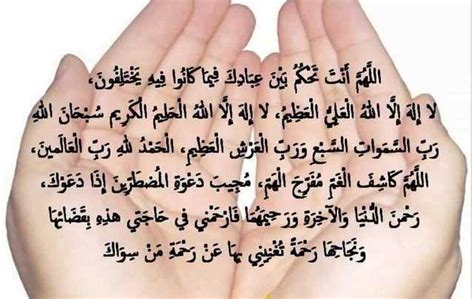 اللَّهُمَّ أَنْتَ تَحْكُمُ بَيْنَ عِبَادِكَ فِيمَا كَانُوا فِيهِ يَخْتَلِفُونَ،
لا إِلهَ إِلَّا اللهُ الْعَلِيُّ الْعَظِيمُ، لا إِلهَ إِلَّا اللهُ الْحَلِيمُ الْكَرِيم سُبْحَانَ اللهِ
رَبِّ السَّموَاتِ السَّبْعِ وَرَبِّ الْعَرْشِ الْعَظِيمِ، الْحَمْدُ للهِ رَبِّ الْعَالَمِينَ،
اللَّهُمَّ كَاشِفَ الْغَمِّ مُفَرِّجَ الْهَمِّ، مُجِيبَ دَعْوَةِ الْمُضْطَرِّينَ إِذَا دَعَوْكَ،
رَحْمنَ الدُّنْيَا وَالآخِرَةِ وَرَحِيمَهُمَا فَارْحَمْنِي فِي حَاجَتِي هذِهِ بِقَضَائِهَا
وَنَجَاحِهَا رَحْمَةً تُغْنِينِي بِهَا عَنْ رَحْمَةِ مَنْ سِوَاكَ